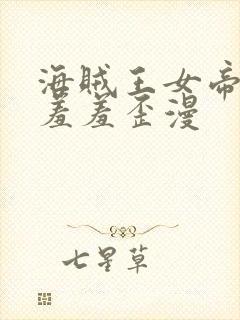 海贼王女帝
羞羞歪漫
七星草